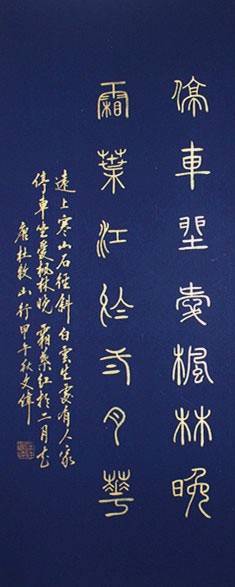 停車坐愛楓林晚
霜葉江於弍月華
遠上寒山石徑斜 白雲生處有人家
停車坐愛楓林晚 霜葉紅於二月花
唐杜牧山行甲午秋文偉